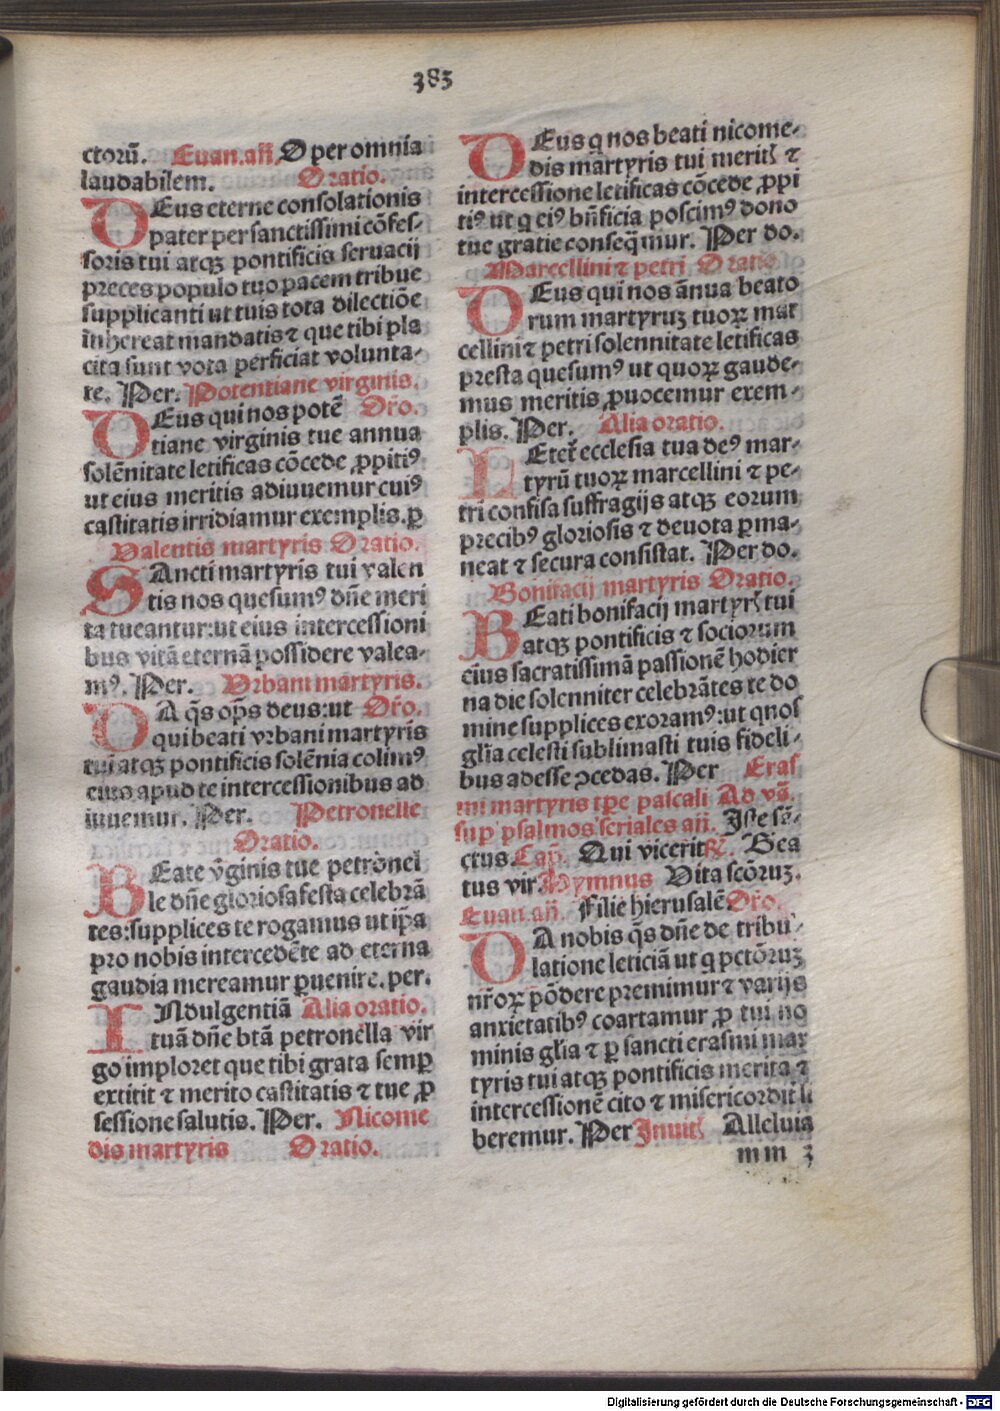 383
ctorū. Euan. añ. O per omnia
laudabilem. Oratio.
DEus eterne consolationis
pater per sanctissimi cōfes-
soris tui atqꝫ pontificis seruacij
preces populo tuo pacem tribue
supplicanti ut tuis tota dilectiōe
inhereat mandatis ⁊ que tibi pla
cita sunt vota perficiat volunta-
te. Per. Potentiane virginis.
DEus qui nos potē Or̄o.
tiane virginis tue annua
solēnitate letificas cōcede ꝓpitiꝰ
ut eius meritis adiuuemur cuiꝰ
castitatis irridiamur exemplis. ꝑ
Valentis martyris Oratio.
SAncti martyris tui valen
tis nos quesumꝰ dn̄e meri
ta tueantur: ut eius intercessioni
bus vitā eternā possidere valea-
mꝰ. Per. Vrbani martyris.
DA q̄s op̄s deus: ut Or̄o.
qui beati vrbani martyris
tui atqꝫ pontificis solēnia colimꝰ
eius apud te intercessionibus ad
iuuemur. Per. Petronelle
Oratio.
BEate v̄ginis tue petronel
le dn̄e gloriosa festa celebrā
tes: supplices te rogamus ut ip̄a
pro nobis intercedēte ad eterna
gaudia mereamur ꝑuenire. per.
INdulgentiā Alia oratio.
tuā dn̄e btā petronella vir
go imploret que tibi grata semꝑ
extitit ⁊ merito castitatis ⁊ tue ꝓ
fessione salutis. Per. Nicome
dis martyris Oratio.
DEus q nos beati nicome-
dis martyris tui meritꝭ ⁊
intercessione letificas cōcede ꝓpi
tiꝰ ut q eiꝰ bn̄ficia poscimꝰ dono
tue gratie conseq̄mur. Per do.
Marcellini ⁊ petri Oratio
DEus qui nos ānua beato
rum martyruꝫ tuoꝝ mar
cellini ⁊ petri solennitate letificas
presta quesumꝰ ut quoꝝ gaude-
mus meritis ꝓuocemur exem-
plis. Per. Alia oratio.
LEtet̄ ecclesia tua deꝰ mar-
tyrū tuoꝝ marcellini ⁊ pe-
tri confisa suffragijs atqꝫ eorum
precibꝰ gloriosis ⁊ deuota ꝑma-
neat ⁊ secura consistat. Per do.
Bonifacij martyris Oratio.
BEati bonifacij martyrꝭ tui
atqꝫ pontificis ⁊ sociorum
eius sacratissimā passionē hodier
na die solenniter celebrātes te do
mine supplices exoramꝰ: ut qnos
gl̄ia celesti sublimasti tuis fideli-
bus adesse ꝯcedas. Per Eras
mi martyris tp̄e pascali Ad vs̄.
sup̄ psalmos feriales añ. Iste sā-
ctus Cap̄. Qui vicerit ℟. Bea
tus vir. Hymnus Vita scōruꝫ.
Euan. añ. Filie hierusalē Or̄o.
DA nobis q̄s dn̄e de tribu-
latione leticiā ut q pctōruꝫ
nr̄oꝝ pōdere premimur ⁊ varijs
anxietatibꝰ coartamur ꝓ tui no
minis gl̄ia ⁊ ꝑ sancti erasmi mar
tyris tui atqꝫ pontificis merita ⁊
intercessionē cito ⁊ misericordit̄ li
beremur. Per Inuitꝭ Alleluia
mm 3
Digitalisierung gefördert durch die Deutsche Forschungsgemeinschaft - DFG